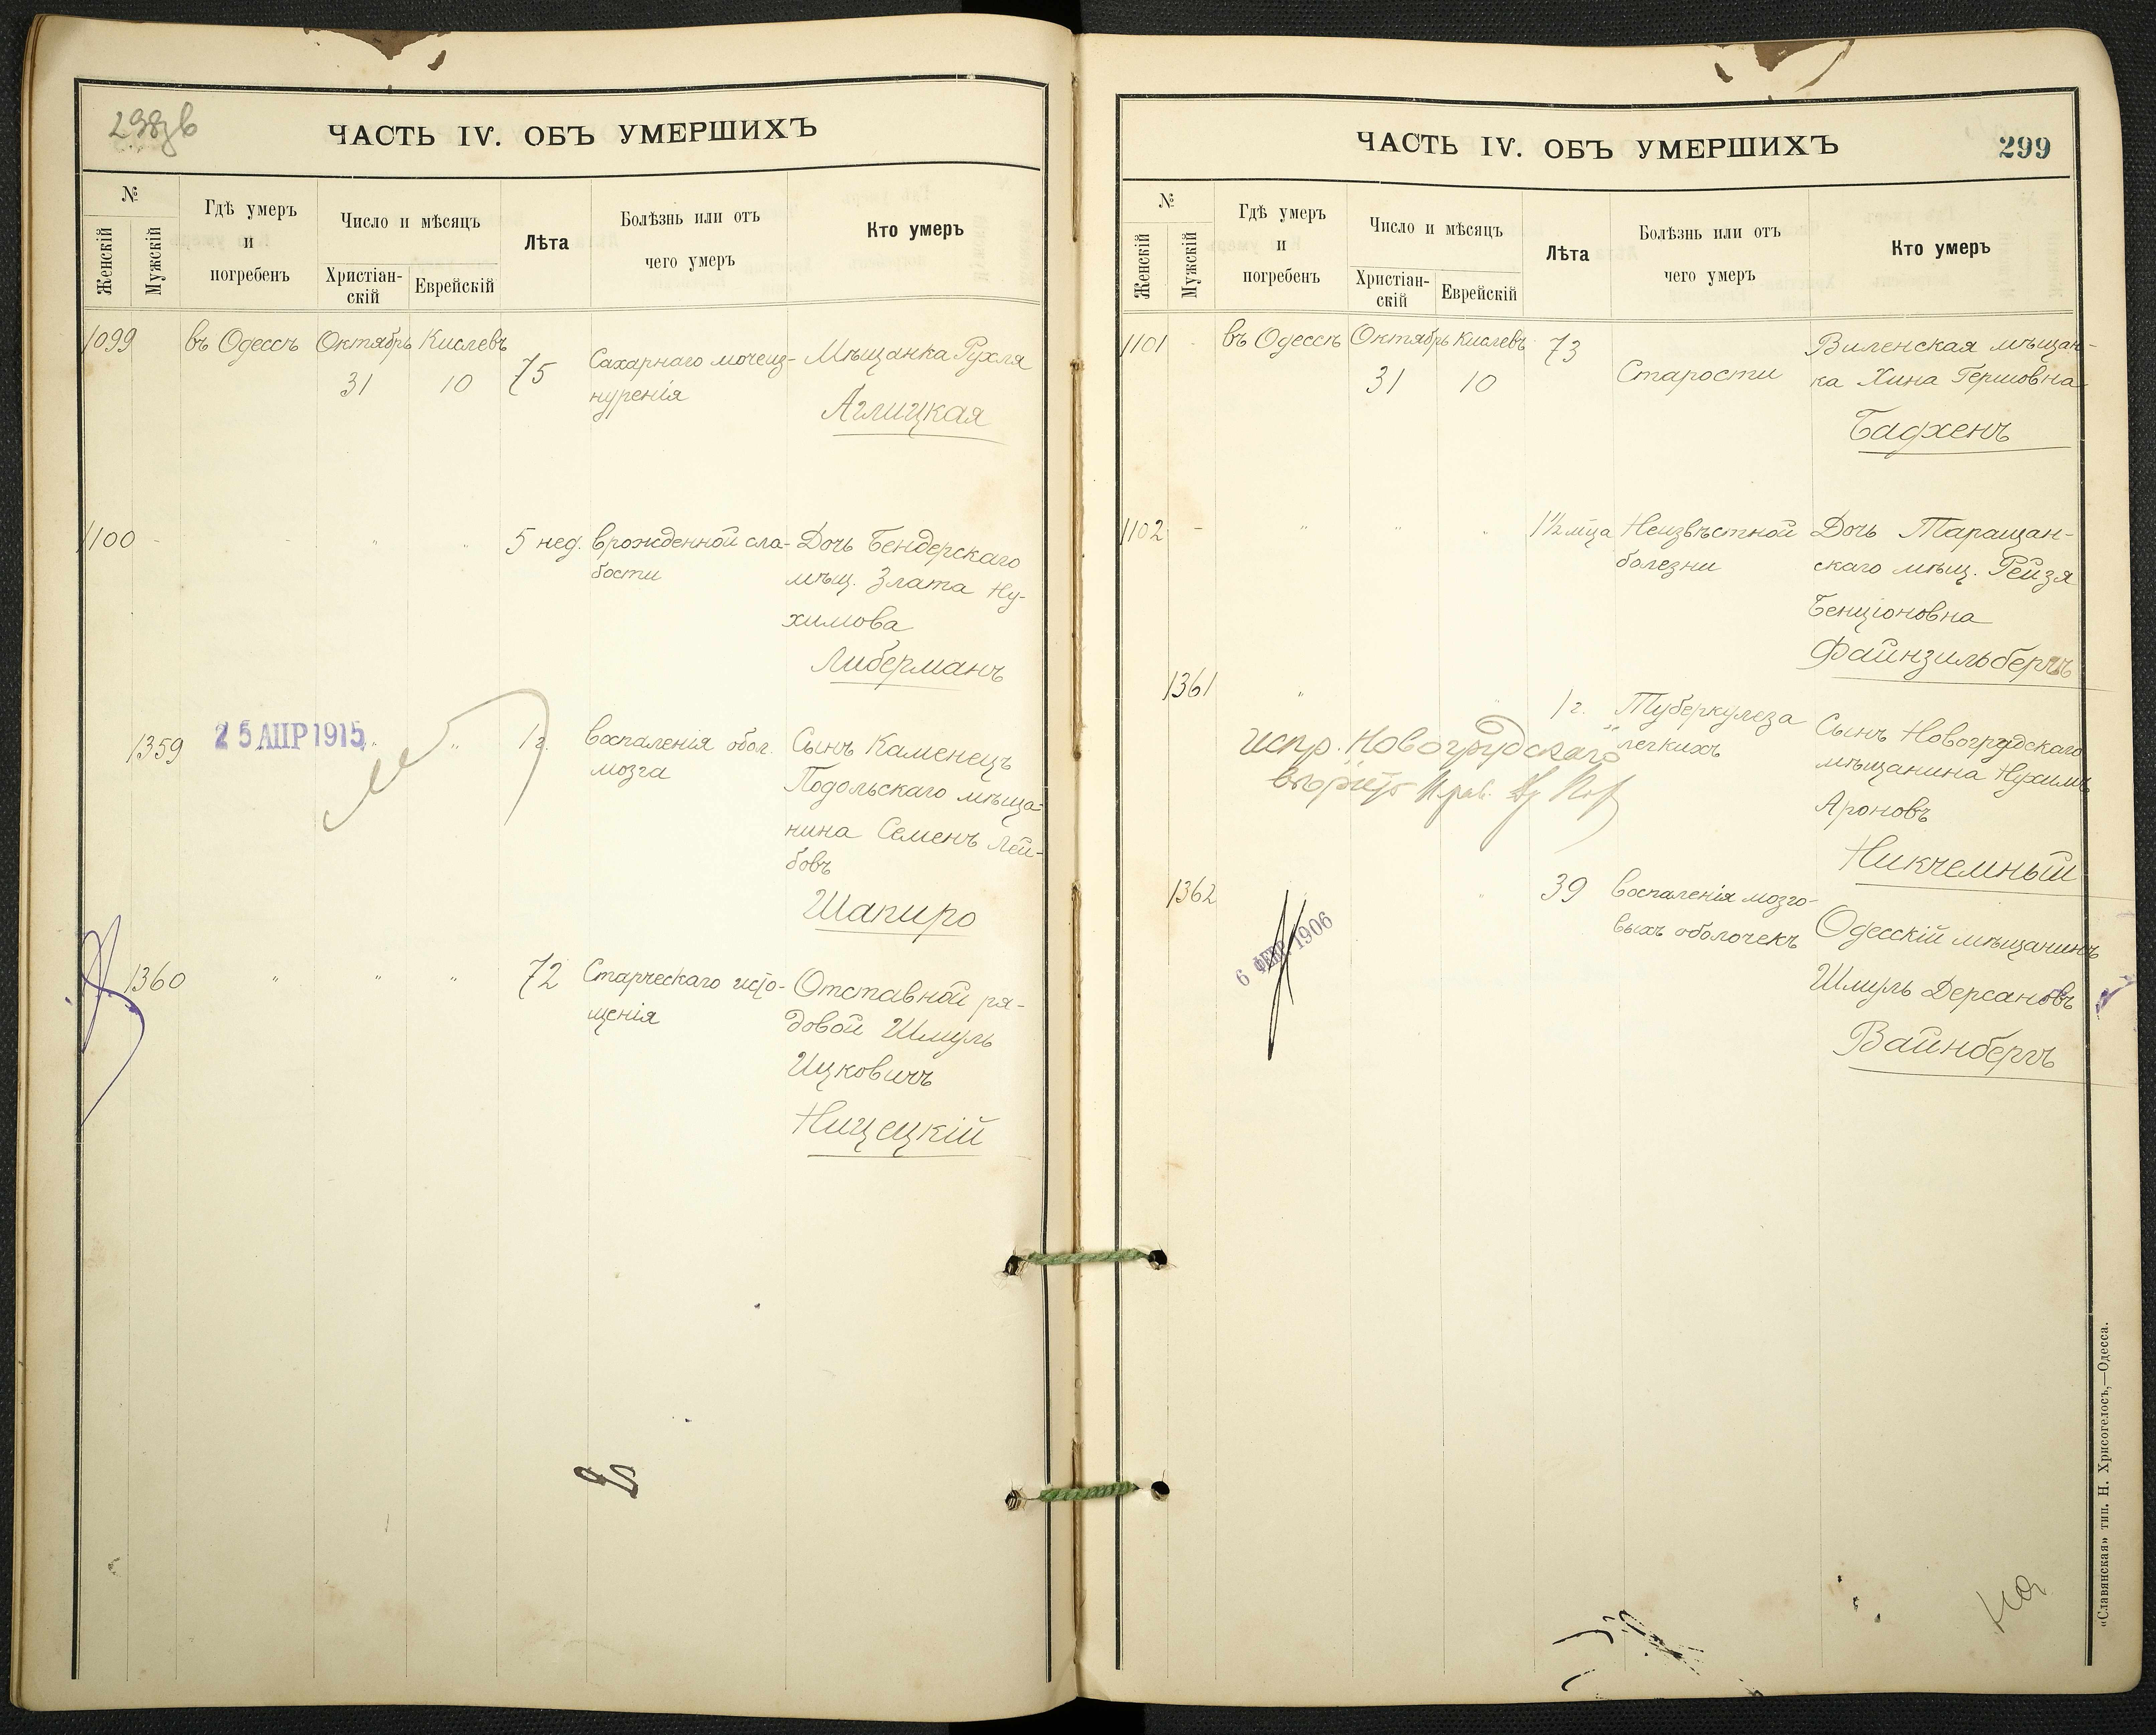 ЧАСТЬ IV. ОБЪ УМЕРШИХЪ
№
Женскій
Мужскій
Гдѣ умеръ
и
погребенъ
Число и мѣсяцъ
Христіан-
скій
Еврейскій
Лѣта
Болѣзнь или отъ
чего умеръ
Кто умеръ
1099
въ Одессѣ
Октябрь
31
Кислевъ
10
75
Сахарнаго мочеиз-
нуренія
Мѣщанка Рухля
Аглицкая
1100
5 нед.
врожденной сла-
бости
Дочь Бендерскаго
мѣщ. Злата Ну-
химова
Либерманъ
1359
25 АПР 1915
1 г.
воспаленія обол.
мозга
Сынъ Каменецъ
Подольскаго мѣща-
нина Семенъ Лей-
бовъ
Шапиро
1360
"
"
"
72
Старческаго исто-
щенія
Отставной ря-
довой Шмуль
Ицковичъ
Ницецкій
ЧАСТЬ IV. ОБЪ УМЕРШИХЪ
299
№
Женскій
Мужскій
Гдѣ умеръ
и
погребенъ
Число и мѣсяцъ
Христіан-
скій
Еврейскій
Лѣта
Болѣзнь или отъ
чего умеръ
Кто умеръ
1101
въ Одессѣ
Октябрь
31
Кислевъ
10
73
Старости
Виленская мѣщан-
ка Хина Гершовна
Бадхенъ
1102
"
"
"
1½ мца
Неизвѣстной
болезни
Дочь Таращан-
скаго мѣщ. Рейзя
Бенціоновна
Файнзильбергъ
1361
"
1 г.
Туберкулеза
легкихъ
Сынъ Новогрудскаго
мѣщанина Нухимъ
Ароновъ
Никчемный
испр. "Новогрудскаго"
1362
6 ФЕВР 1906
39
воспаленія мозго-
выхъ оболочекъ
Одесскій мѣщанинъ
Шмуль Дерсановъ
Вайнбергъ
«Славянская» тип. Н. Хрисогелосъ,—Одесса.